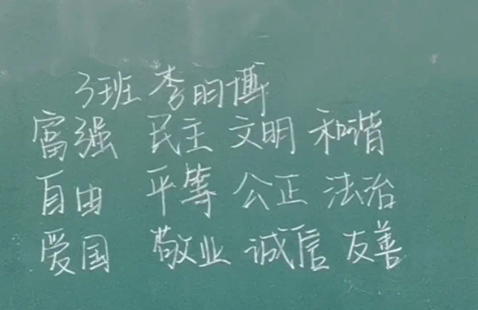 3班 李昀博
富强 民主 文明 和谐
自由 平等 公正 法治
爱国 敬业 诚信 友善